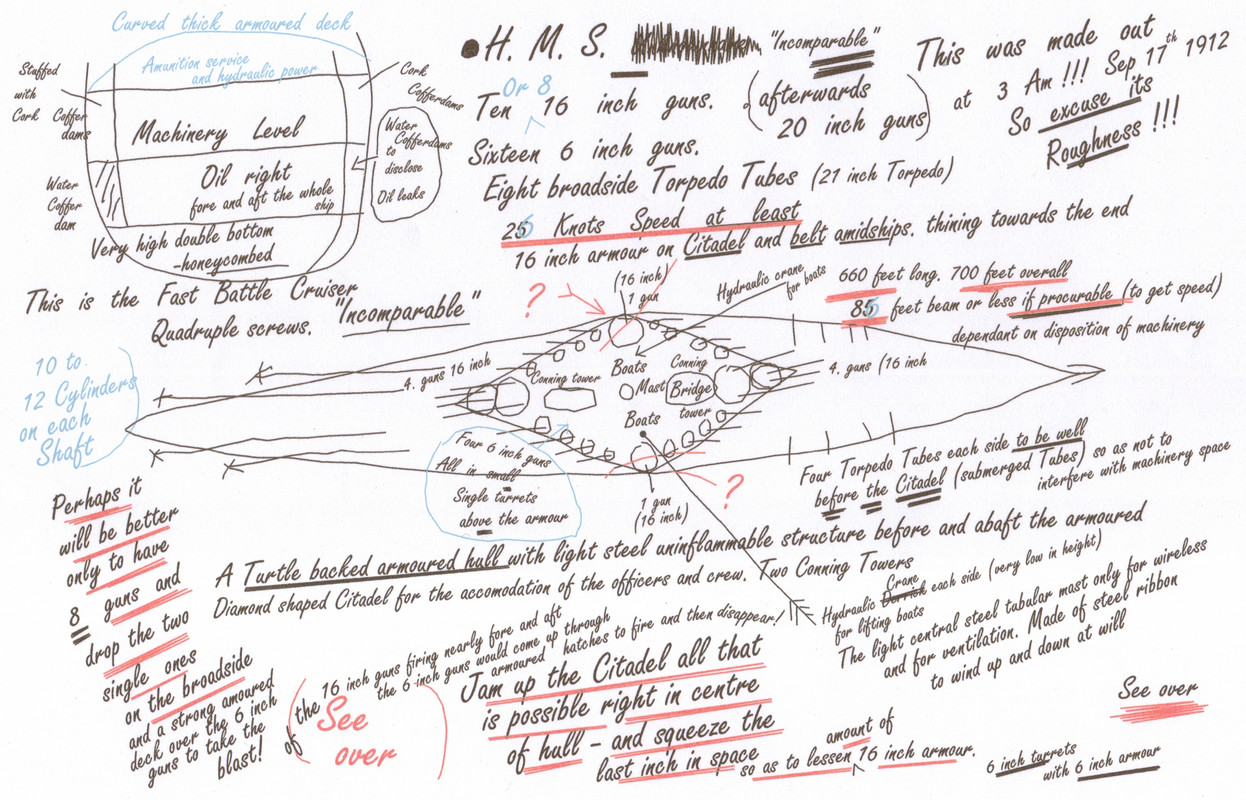 Curved thick armoured deck
Amunition service
and hydraulic power
Stuffed
with
Cork Coffer
dams
Cork
Cofferdams
Machinery Level
Water
Cofferdams
to
disclose
Oil leaks
Oil right
fore and aft the whole
ship
Water
Coffer
dam
Very high double bottom
-honeycombed
H. M. S. "Incomparable"
Or 8
Ten 16 inch guns. (afterwards
20 inch guns)
Sixteen 6 inch guns.
Eight broadside Torpedo Tubes (21 inch Torpedo)
This was made out
at 3 Am !!! Sep 17th 1912
So excuse its
Roughness !!!
Knots Speed at least
16 inch armour on Citadel and belt amidships. thining towards the end
This is the Fast Battle Cruiser
"Incomparable"
Quadruple screws.
660 feet long. 700 feet overall
feet beam or less if procurable (to get speed)
dependant on disposition of machinery
10 to
12 Cylinders
on each
Shaft
?
(16 inch)
1 gun
Hydraulic crane
for boats
4. guns 16 inch
Conning tower
Boats
Mast
Conning
Bridge
tower
Boats
4. guns (16 inch
Four 6 inch guns
All in small
Single turrets
above the armour
1 gun
(16 inch)
?
Four Torpedo Tubes each side to be well
before the Citadel (submerged Tubes) so as not to
interfere with machinery space
Perhaps it
will be better
only to have
8 guns and
drop the two
single ones
on the broadside
and a strong amoured
deck over the 6 inch
guns to take the
blast!
of
A Turtle backed armoured hull with light steel uninflammable structure before and abaft the armoured
Diamond shaped Citadel for the accomodation of the officers and crew. Two Conning Towers
Hydraulic Derrick Crane each side (very low in height)
for lifting boats
The light central steel tubular mast only for wireless
and for ventilation. Made of steel ribbon
to wind up and down at will
the 16 inch guns firing nearly fore and aft
the 6 inch guns would come up through
armoured hatches to fire and then disappear!
See
over
Jam up the Citadel all that
is possible right in centre
of hull - and squeeze the
last inch in space
so as to lessen amount of 16 inch armour.
See over
6 inch turrets
with 6 inch armour